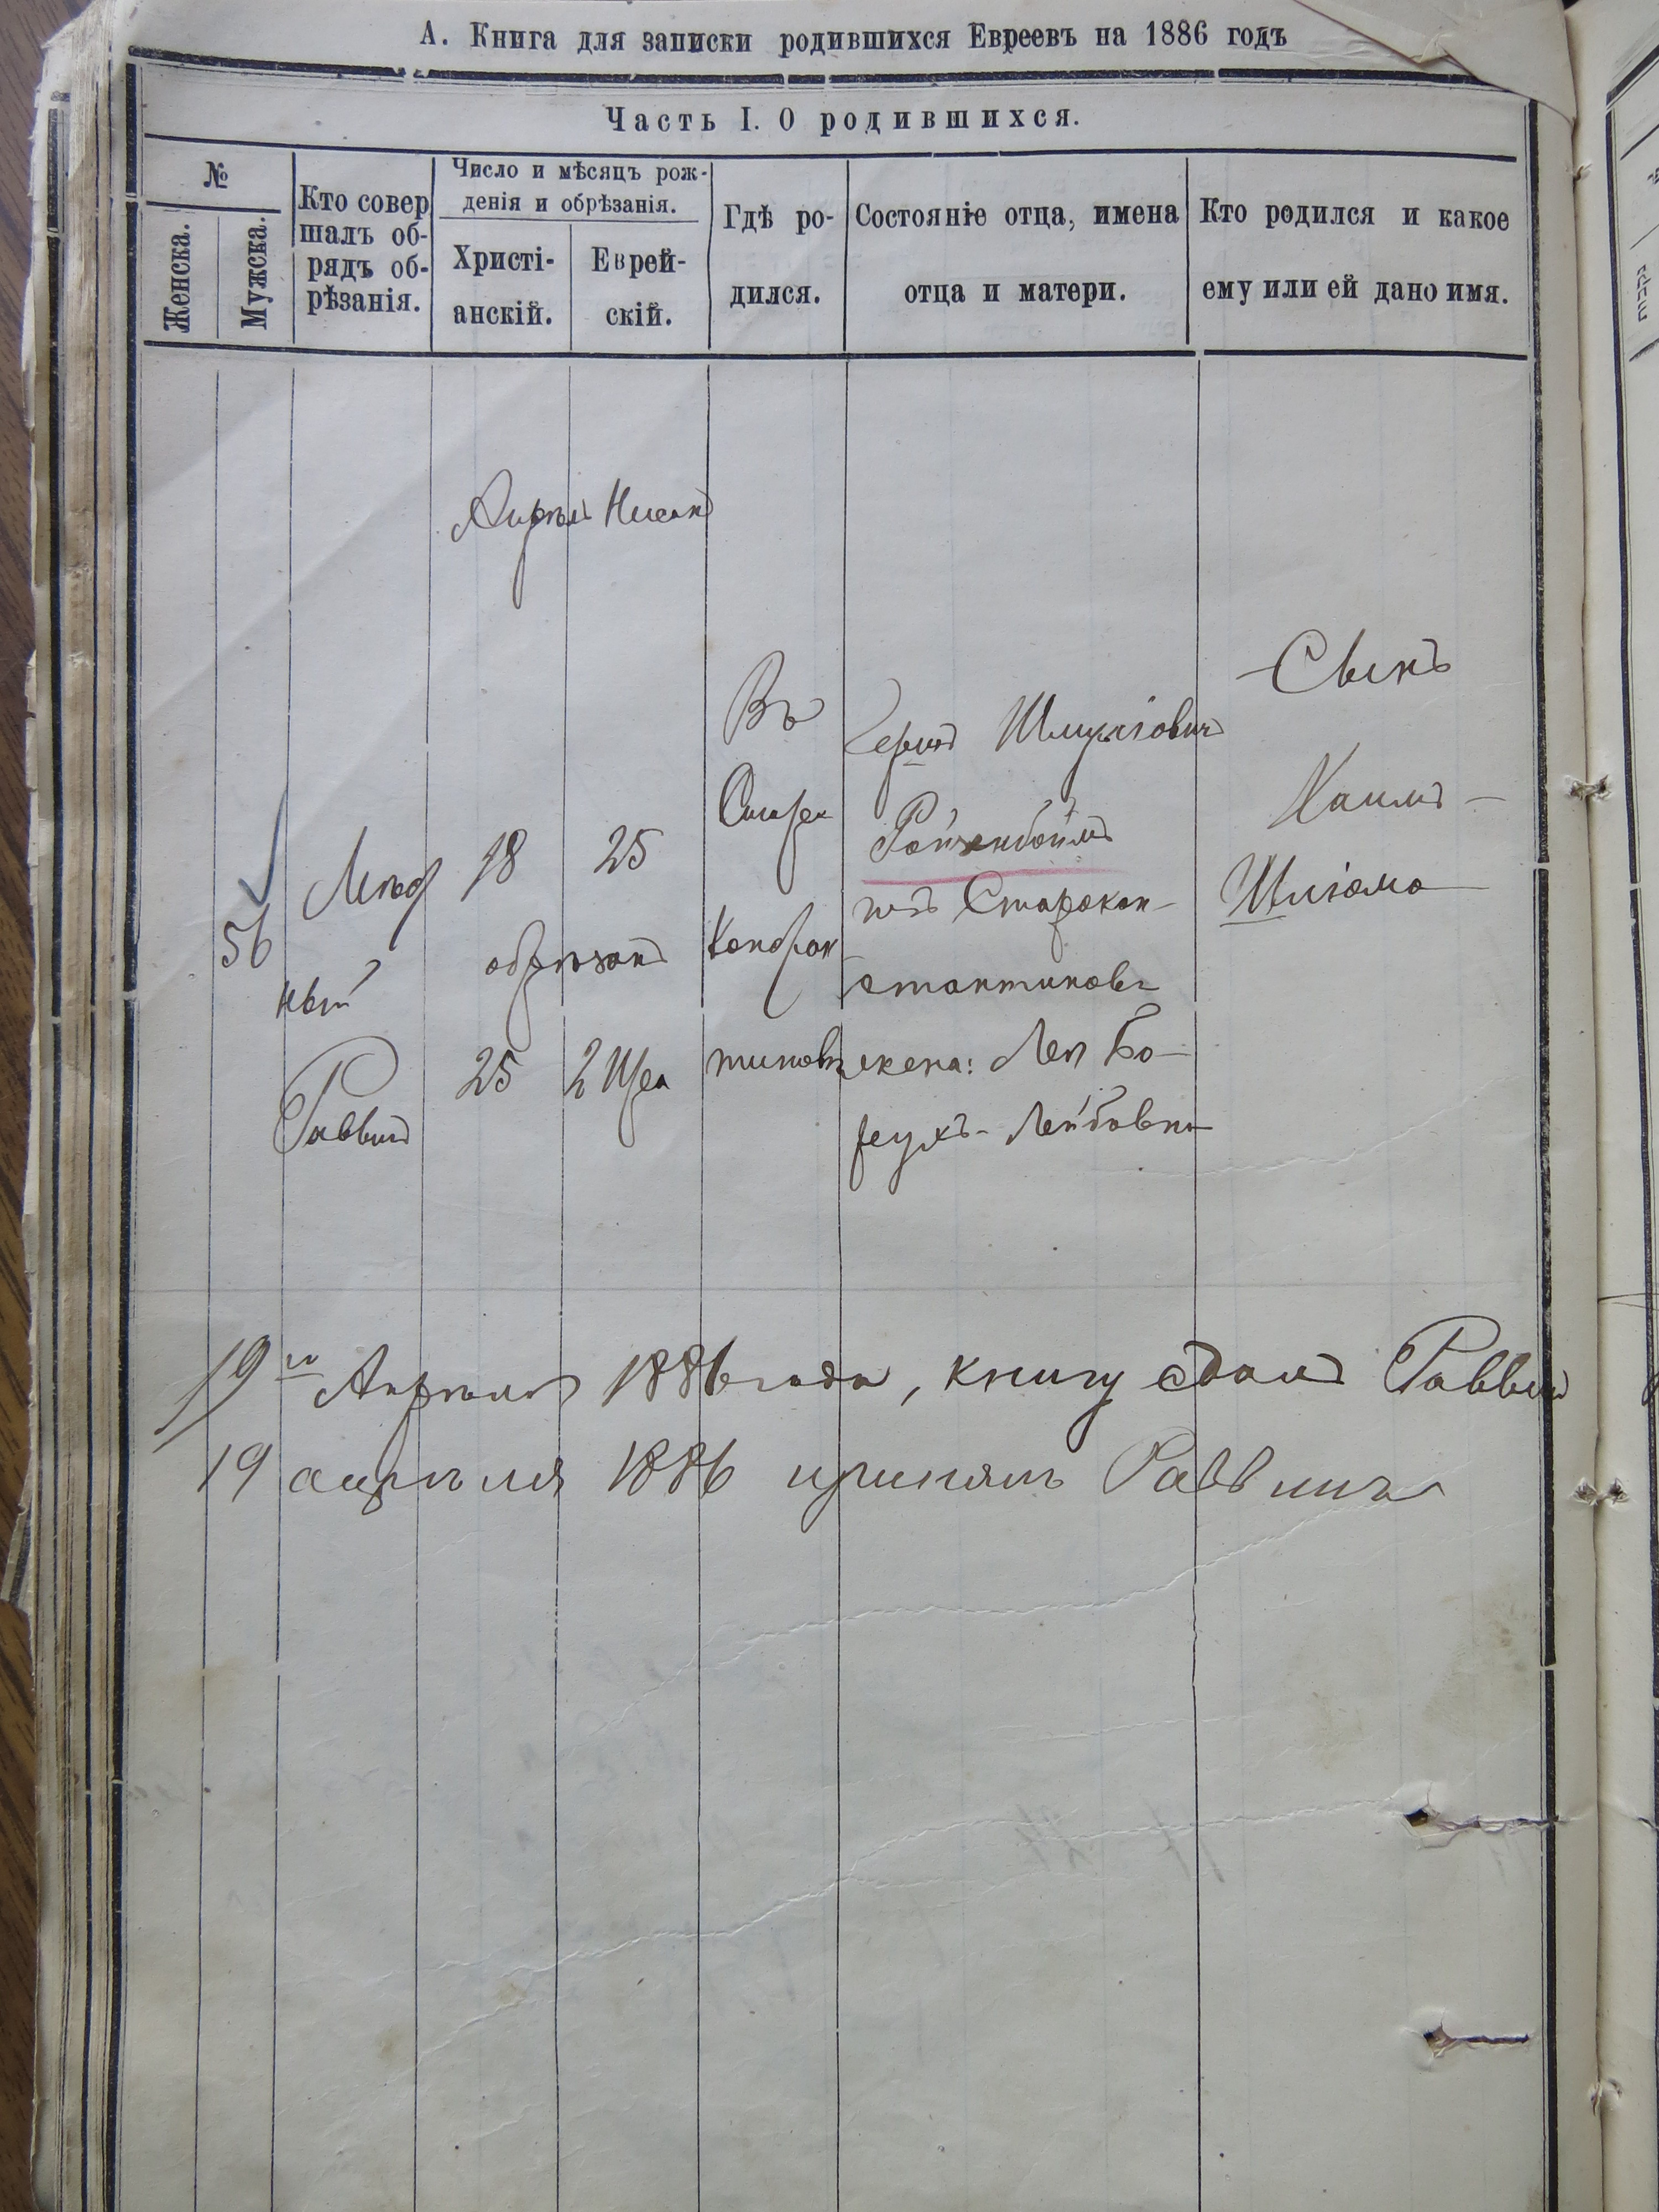 А. Книга для записки родившихся Евреевъ на 1886 годъ
Часть I. О родившихся.
№
Женска.
Мужска.
Кто совер
шалъ об-
рядъ об-
рѣзанія.
Число и мѣсяцъ рож-
денія и обрѣзанія.
Христі-
анскій.
Еврей-
скій.
Гдѣ ро-
дился.
Состояніе отца, имена
отца и матери.
Кто родился и какое
ему или ей дано имя.
Апрѣль Нисанъ
56
ный
Раввинъ
18 25
обрѣзанъ
25 2
Въ
Старо
Констан
тиновѣ
Шмулiовичъ
Ройзенбоймъ
изъ Старокон-
стантиновъ
жена: Лея Бо-
рухъ-Лейбовна
Сынъ
Хаимъ-
Шліома
19го Апрѣля 1886 года, книгу сдалъ Раввинъ
19 апрѣля 1886 принялъ Раввинъ